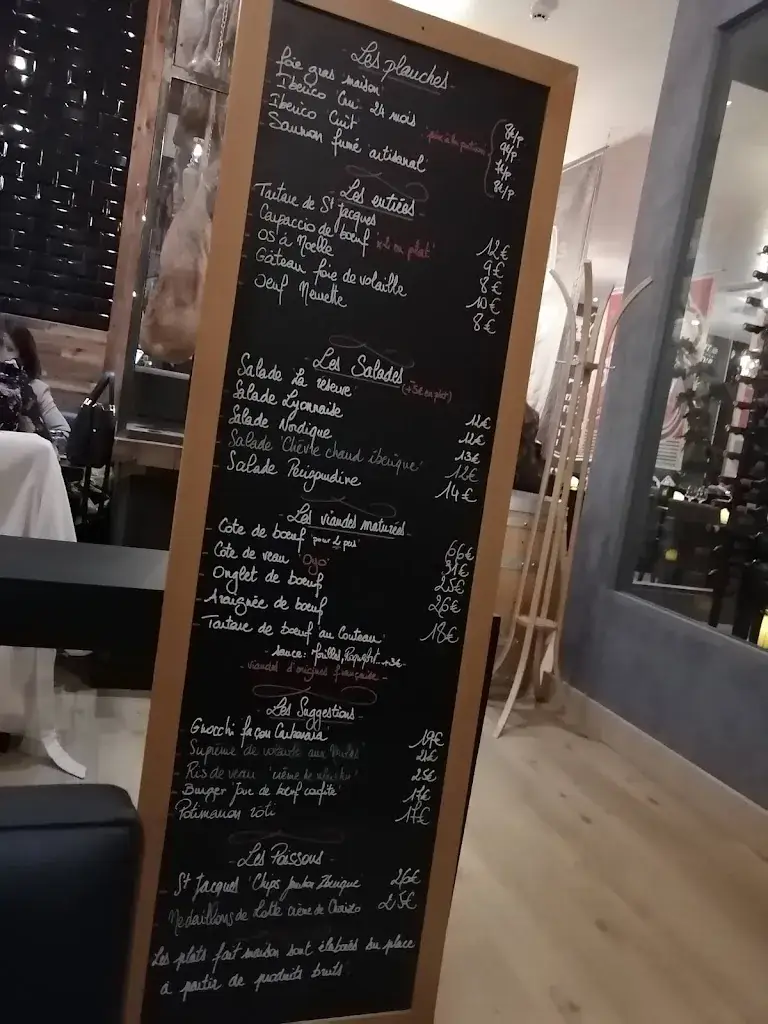 Les planches
foie gras maison 8€/p
Iberico Cru 24 mois 9€/p
Iberico Cuit 7€/p
Saumon fumé artisanal 8€/p
Les entrées
Tartare de St Jacques 12€
Carpaccio de boeuf "x2 en plat" 9€
OS à Moelle 8€
Gâteau foie de volaille 10€
Oeuf Meurette 8€
Les Salades (+5€ en plat)
Salade La réserve 12€
Salade Lyonnaise 12€
Salade Nordique 13€
Salade "Chèvre chaud ibérique" 12€
Salade Perigourdine 14€
Les viandes maturées
- Cote de boeuf "pour 2 pers" 66€
- Cote de veau "Oyo" 31€
- Onglet de boeuf 25€
- Araignée de boeuf 26€
- Tartare de boeuf au Couteau 18€
- sauce: Morilles, Roquefort... +3€
- viandes d'origines française -
- Les Suggestions -
- Gnocchi façon Carbonara 19€
- Suprême de volaille aux
- Ris de veau 25€
- Burger Joue de boeuf confite 17€
Potimarron rôti 17€
- Les Poissons -
- St Jacques Chips jambon Iberique 26€
- Medaillons de Lotte crème de Chorizo 25€
Les plats fait maison sont élaborés sur place
à partir de produits bruts